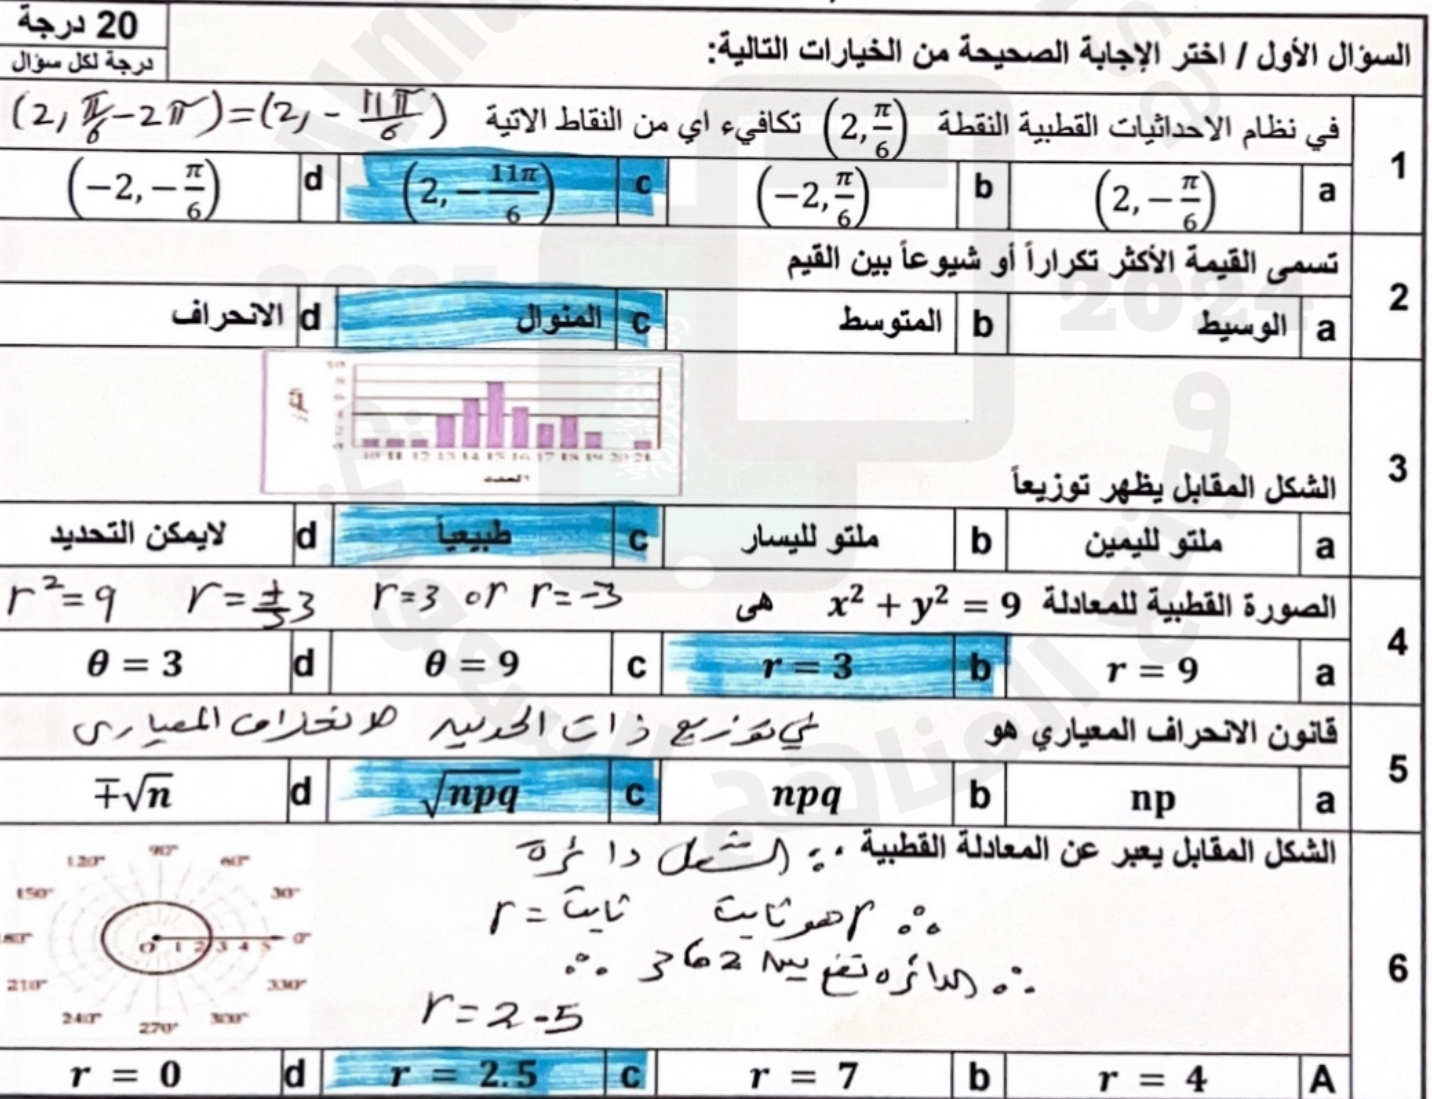 20 درجة
درجة لكل سؤال
السؤال الأول / اختر الإجابة الصحيحة من الخيارات التالية:
1
في نظام الاحداثيات القطبية النقطة (2, π/6) تكافيء اي من النقاط الاتية (2, π/6 - 2π) = (2, - 11π/6)
a (2, -π/6) b (-2, π/6) c (2, -11π/6) d (-2, -π/6)
2
تسمى القيمة الأكثر تكراراً أو شيوعاً بين القيم
a الوسيط b المتوسط c المنوال d الانحراف
3
10 11 12 13 14 15 16 17 18 19 20 21
الشكل المقابل يظهر توزيعاً
a ملتو لليمين b ملتو لليسار c طبيعياً d لايمكن التحديد
4
الصورة القطبية للمعادلة x² + y² = 9 هى r² = 9 r = ±3 r = 3 or r = -3
a r = 9 b r = 3 c θ = 9 d θ = 3
5
قانون الانحراف المعياري هو في توزيع ذات الحدين الانحراف المعياري
a np b npq c √npq d ∓√n
6
الشكل المقابل يعبر عن المعادلة القطبية ∵ الشكل دائرة
∴ r هو ثابت r = ثابت
∴ الدائرة تقع بين 2 و 3 ∴
r = 2.5
90° 60° 30° 0° 330° 300° 270° 240° 210° 180° 150° 120°
O 1 2 3 4 5
A r = 4 b r = 7 c r = 2.5 d r = 0
2024
موقع المناهج السعودية